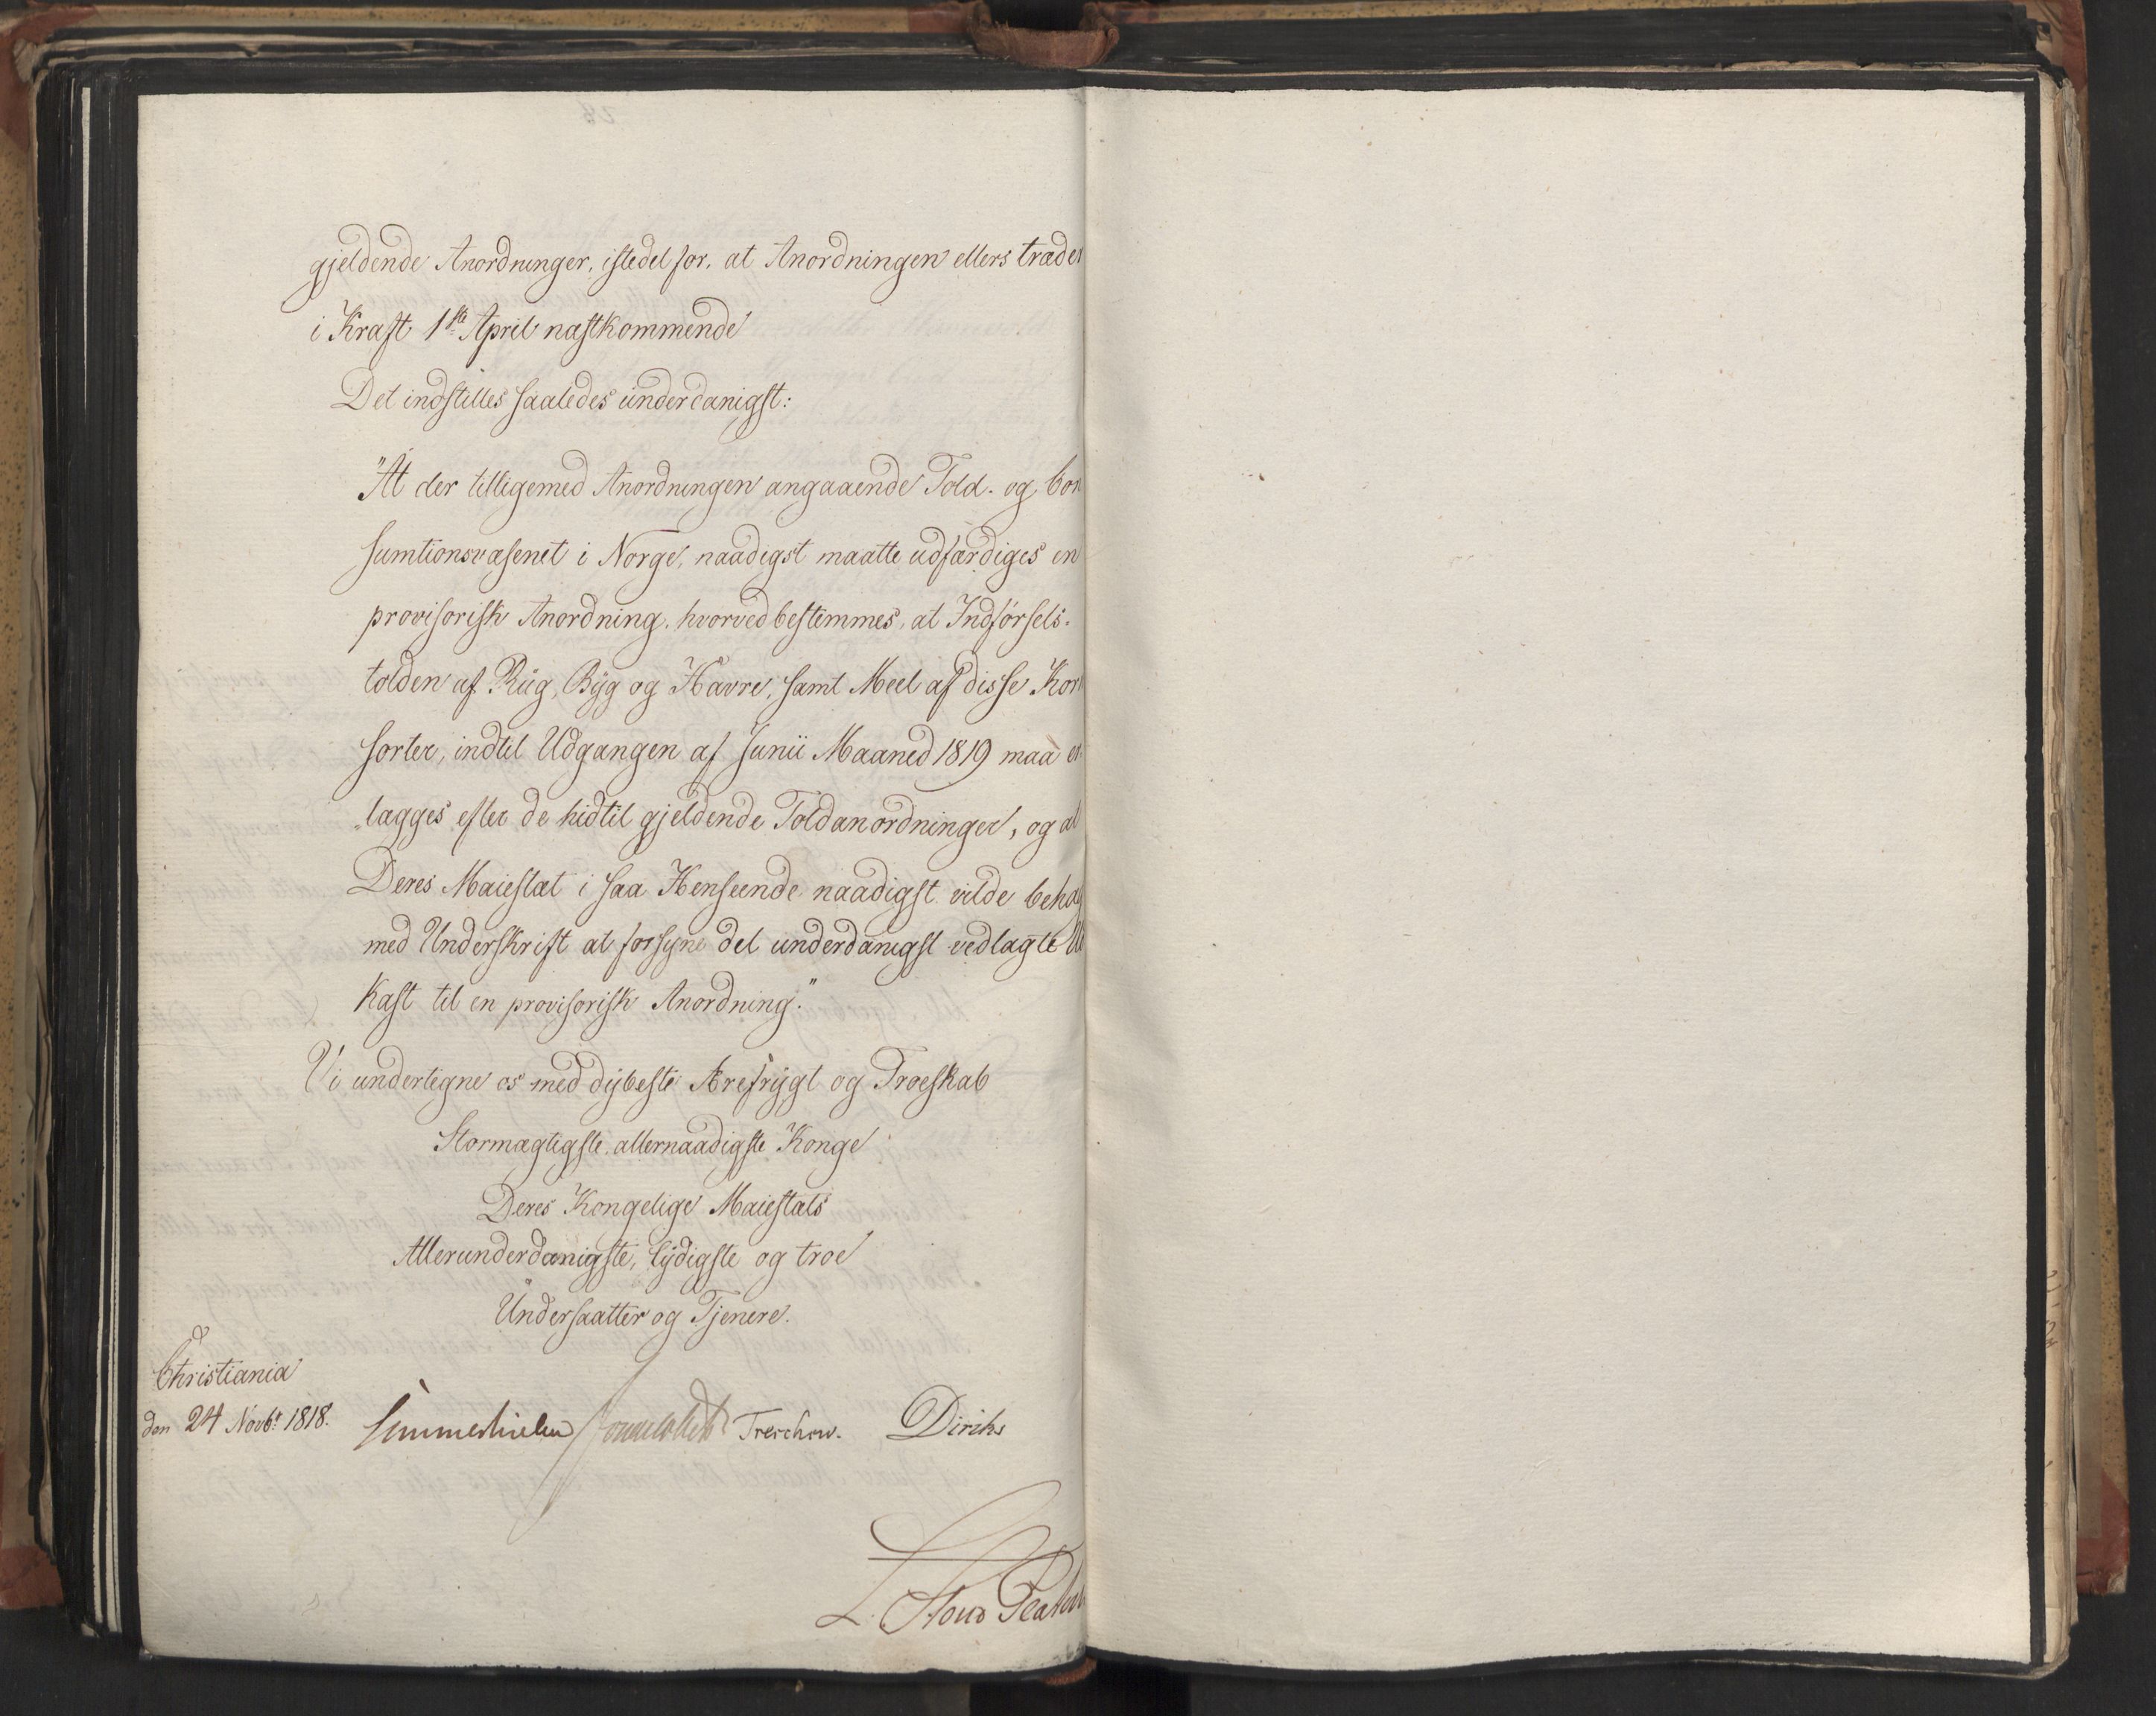 gjeldende Anordninger, istedet for, at Anordningen ellers træder
i Kraft 1ste April næstkommende
Det indstilles saaledes underdanigst:
"At der tilligemed Anordningen angaaende Told- og Con
sumtionsvæsenet i Norge, naadigst maatte udfærdiges en
provisorisk Anordning, hvorved bestemmes, at Indførsels-
tolden af Rug, Byg og Havre, samt Meel af disse Korn
sorter, indtil Udgangen af Junii Maaned 1819 maa er-
lægges efter de hidtil gjeldende Toldanordninger, og at
Deres Maiestæt i saa Henseende naadigst vilde behag
med Underskrift at forsyne det underdanigst vedlagte Ud
kast til en provisorisk Anordning."
Vi undertegne os med dybeste Ærefrygt og Troeskab
Stormægtigste, allernaadigste Konge
Deres Kongelige Maiestæts
Allerunderdanigste, lydigste og troe
Undersaatter og Tjenere.
Christiania
den 24 Novbr 1818.
Sommerhielm Treschow. Diriks
L. Stoud Platou